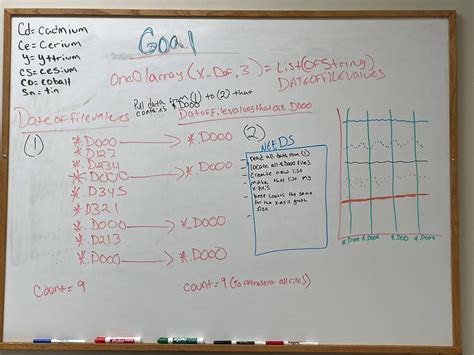 Cd = Cadmium
Ce = Cerium
Y = yttrium
CS = cesium
Co = cobalt
Sn = tin
Goal
OneDlarray (X_Dof, 3) = List(OfString)
DATEOFFILEVALUES
Pull data from (1) to (2) that
contains *.D000
Dateoffilevalues
Dateoffilevalues that are .D000
(1)
*.D000 → *.D000
*.D127
*.D234
*.D000 → *.D000
*.D345
*.D321
*.D000 → *.D000
*.D213
*.D000 → *.D000
count = 9
count = 9 (to represent all files)
(2)
NEEDS
- read all data from (1)
- locate all *.D000 files
- create new list
- make that list my
X-Axis
- keep counts the same
for the x-axis graph
size
*.D000 *.D000 *.D000 *.D000